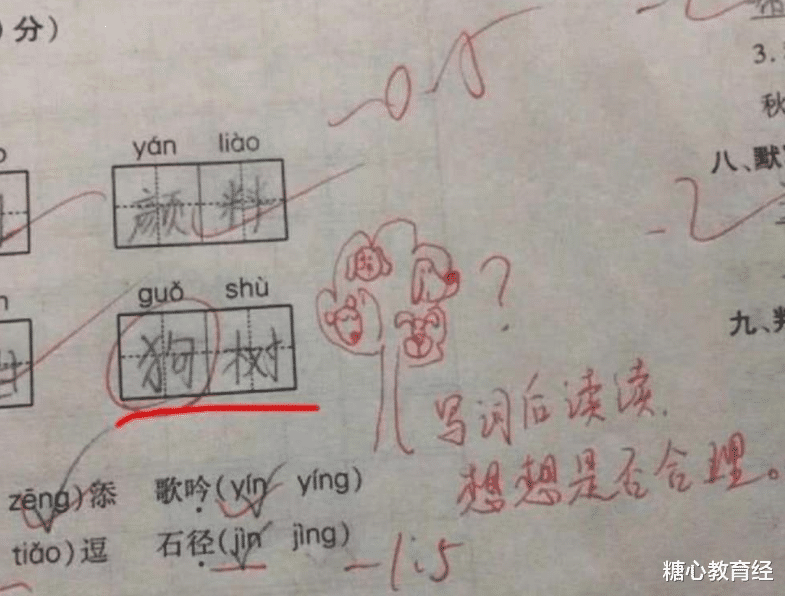 分)
3.
秋
yán liào
颜料
八、默
guǒ shù
狗树
?
九、判
写词后读读,
想想是否合理。
zēng)添 歌吟(yín yíng)
tiǎo)逗 石径(jìn jìng)
-1.5
糖心教育经